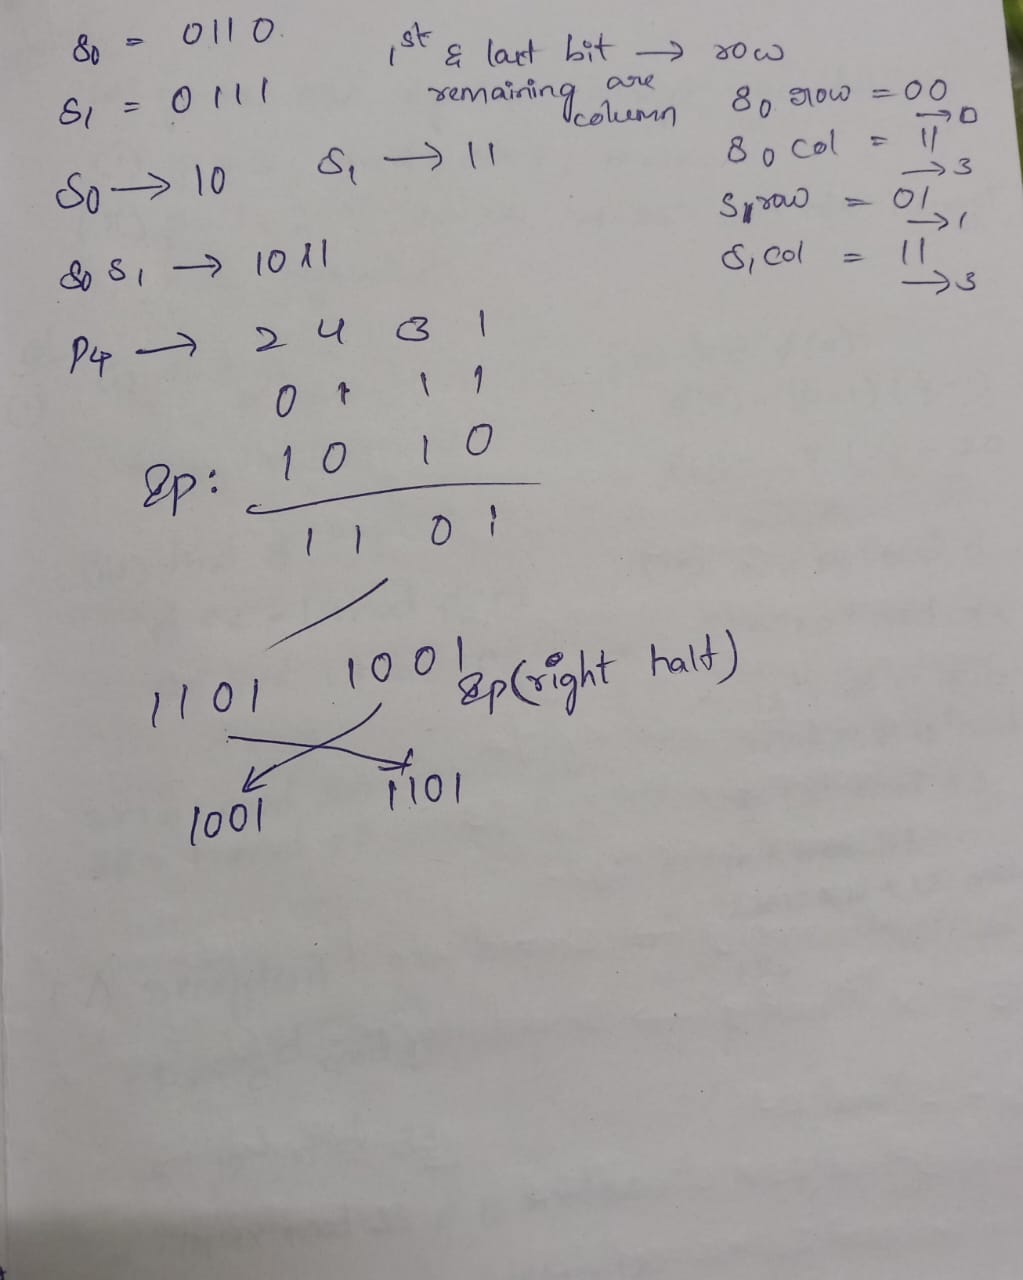 S0 = 0110.
S1 = 0111
1st & last bit → row
remaining are column
S0 row = 00
→ 0
S0 col = 11
→ 3
S1 row = 01
→ 1
S1 col = 11
→ 3
S0 → 10 S1 → 11
S0 S1 → 1011
P4 → 2 4 3 1
0 1 1 1
Ip: 1 0 1 0
1 1 0 1
1101 1001 Ip (right half)
1001 1101